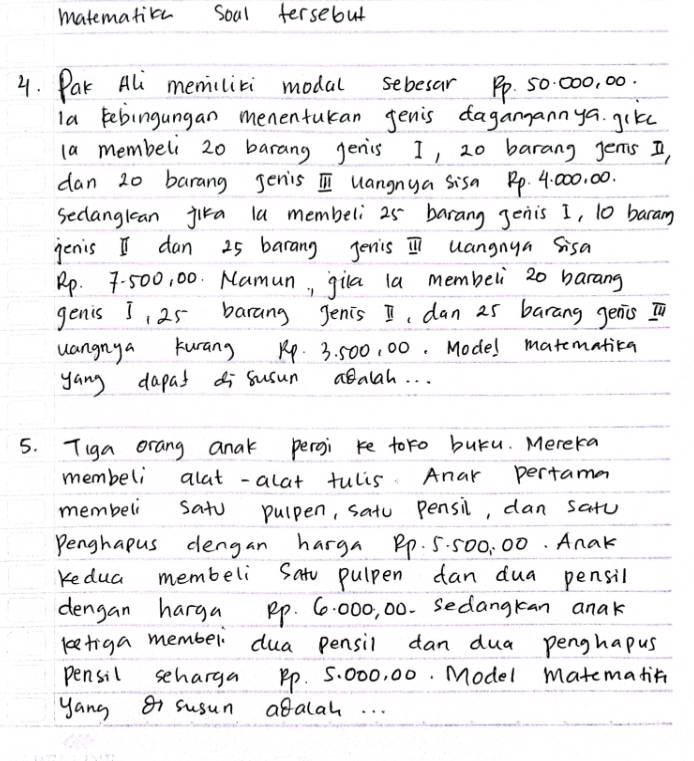 matematika Soal tersebut
4. Pak Ali memiliki modal sebesar Rp. 50.000,00.
Ia kebingungan menentukan jenis dagangannya. jika
Ia membeli 20 barang jenis I, 20 barang jenis II,
dan 20 barang jenis III uangnya sisa Rp. 4.000,00.
Sedangkan jika Ia membeli 25 barang jenis I, 10 barang
jenis II dan 25 barang jenis III uangnya Sisa
Rp. 7.500,00. Namun, jika Ia membeli 20 barang
jenis I, 25 barang jenis II, dan 25 barang jenis III
uangnya kurang Rp. 3.500,00. Model matematika
yang dapat di susun adalah...
5. Tiga orang anak pergi ke toko buku. Mereka
membeli alat-alat tulis. Anak pertama
membeli satu pulpen, satu pensil, dan satu
Penghapus dengan harga Rp. 5.500,00. Anak
kedua membeli satu pulpen dan dua pensil
dengan harga Rp. 6.000,00. Sedangkan anak
ketiga membeli dua pensil dan dua penghapus
pensil seharga Rp. 5.000,00. Model Matematik
yang di susun adalah ...